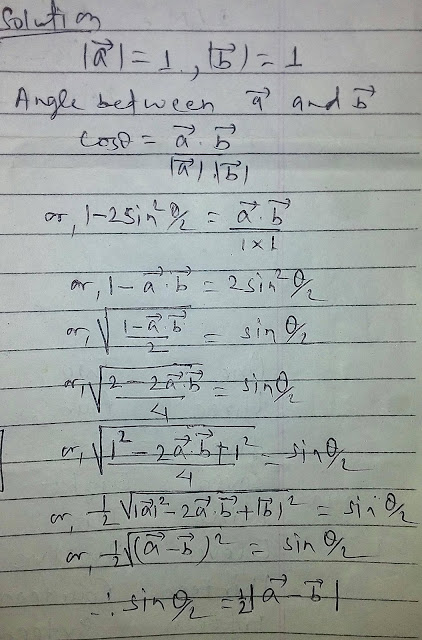 Solution
|a⃗| = 1 , |b⃗| = 1
Angle between a⃗ and b⃗
cosθ = a⃗ . b⃗
|a⃗| |b⃗|
or, 1-2sin²θ/2 = a⃗ . b⃗
1×1
or, 1 - a⃗ . b⃗ = 2sin²θ/2
or, √1-a⃗.b⃗ = sin θ/2
2
or, √2 - 2a⃗.b⃗ = sinθ/2
4
or, √1² - 2a⃗.b⃗ + 1² = sinθ/2
4
or, 1/2 √|a⃗|² - 2a⃗.b⃗ + |b⃗|² = sin θ/2
or, 1/2 √(a⃗ - b⃗)² = sin θ/2
∴ sin θ/2 = 1/2 |a⃗ - b⃗|